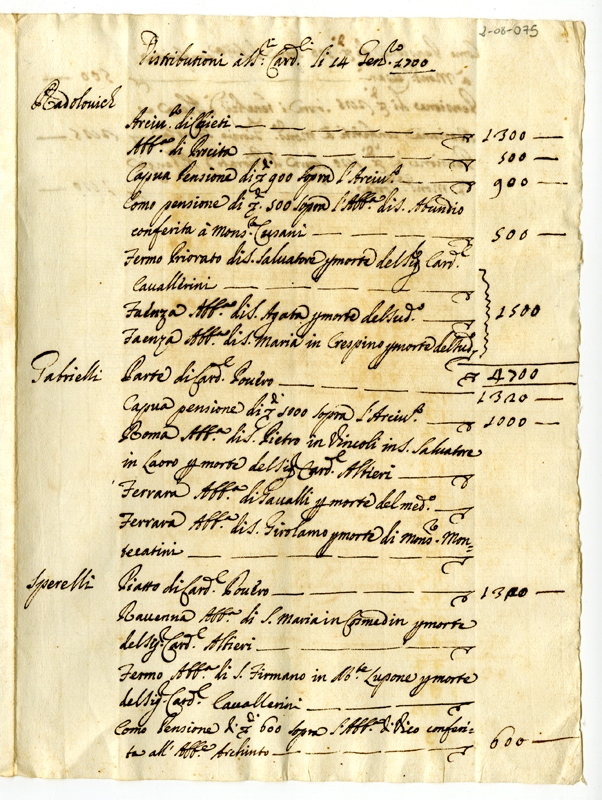 2-08-075
Distributioni a SS.ri Card.li li 14 Gen.ro 1700
Radolovich
Arciu.to di Chieti 1300
Abb.a di Procita 500
Capua Pensione di 900 sopra l'Arciu.to 900
Como pensione di 500 sopra l'Abb.a di S. Abundio
conferita à Mons.r Cusani 500
Fermo Priorato di S. Salvatore p morte del Sig. Card.l
Cavallerini
Faenza Abb.a di S. Agata p morte del sud.o 1500
Faenza Abb.a di S. Maria in Crespino p morte del sud.
4700
Gabrielli Parte di Card.l Povero 1320
Capua pensione di 1000 sopra l'Arciu.to 1000
Roma Abb.a di S. Pietro in Vincoli in S. Salvatore
in Lauro p morte del Sig. Card.l Altieri
Ferrara Abb.a di Gavalli p morte del med.o
Ferrara Abb.a di S. Girolamo p morte di Mons.r Mon=
tecatini
Sperelli Piatto di Card.l Povero 1320
Ravenna Abb.a di S. Maria in Cosmedin p morte
del Sig. Card.l Altieri
Fermo Abb.a di S. Firmano in Lupone p morte
del Sig. Card.l Cavallerini
Como Pensione di 600 sopra l'Abb.a di Vico conferi=
ta all' Abb.e Archinto 600